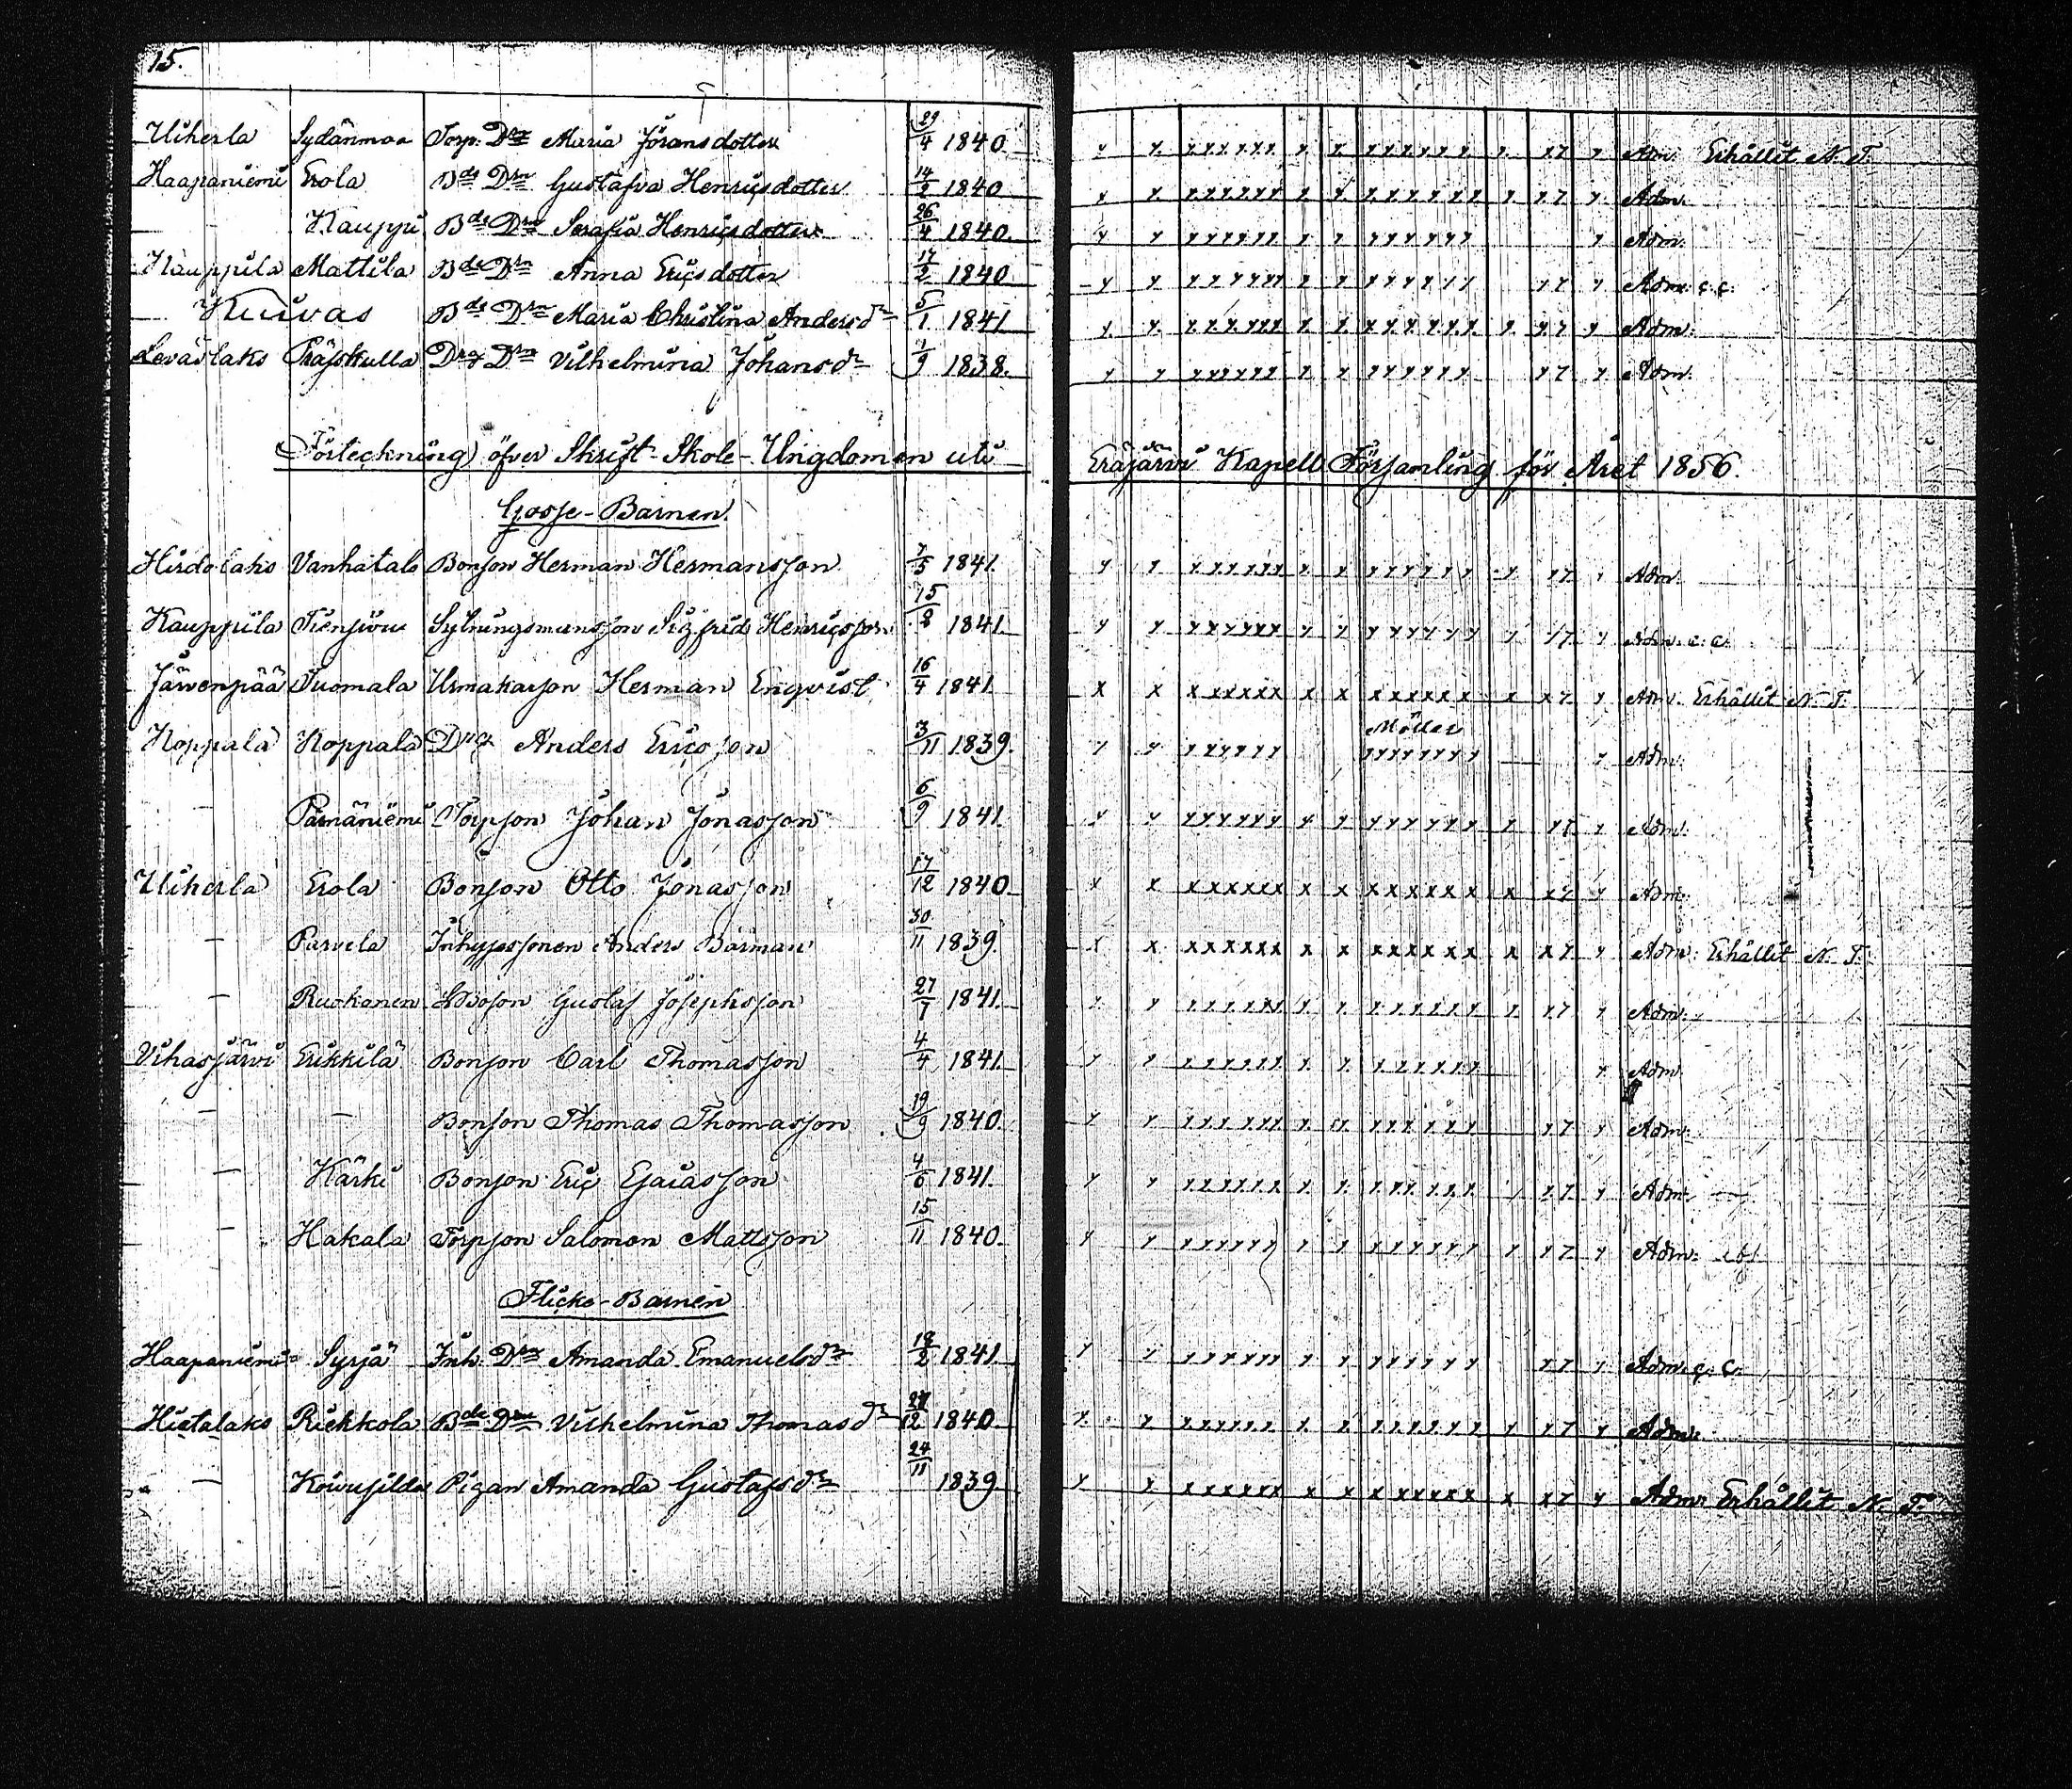 15.
Uiherla Sydänmaa Torp. Dr Maria Jöransdotter 29/4 1840 x x xxxxxx x x xxxxxx x x7 x Adm. Erhållit N. T.
Haapaniemi Erola Bde Drn Gustafva Henricsdotter 14/2 1840 x x xxxxxx x x xxxxxx x x7 x Adm.
— Kauppi Bde Drn Serafia Henricsdotter 26/4 1840. x x xxxxxx x x xxxxxx x Adm.
Kauppila Mattila Bde Drn Anna Ericsdotter 17/2 1840 x x xxxxxx x x xxxxxx x7 x Adm. c. c.
— Kuivas Bde Drn Maria Christina Andersdr 5/1 1841 x x xxxxxx x x xxxxxx x x7 x Adm.
Leväslaks Dr Vilhelmina Johansdr 1/9 1838. x x xxxxxx x x xxxxxx x7 x Adm.
Förteckning öfver Skrift-Skole-Ungdomen uti Eräjärvi Kapell Församling för Året 1856.
Gosse-Barnen.
Hirdolaks Vanhatalo Bonson Herman Hermansson 7/5 1841. x x xxxxxx x x xxxxxx x x7 x Adm.
Kauppila Sytningsmansson Sigfrid Henricsson 15/8 1841. x x xxxxxx x x xxxxxx x x7 x Adm. c. c.
Järvenpää Tuomala Urmakarson Herman Enqvist 16/4 1841. x x xxxxxx x x xxxxxx x x7 x Adm. Erhållit N. T.
Koppala Koppala Dreng Anders Ericsson 3/11 1839. x x xxxxxx Möller xxxxxxxx x Adm.
— Pärnäniemi Torpson Johan Jonasson 6/9 1841. x x xxxxxx x x xxxxxx x x7 x Adm.
Uiherla Erola Bonson Otto Jonasson 17/12 1840 x x xxxxxx x x xxxxxx x x7 x Adm.
— Parvela Inhyssonen Anders Barman 30/11 1839. x x xxxxxx x x xxxxxx x x7 x Adm. Erhållit N. T.
— Ruokonen Gustaf Josephsson 27/7 1841. x x xxxxxx x x xxxxxx x x7 x Adm.
Vihasjärvi Erikkilä Bonson Carl Thomasson 4/4 1841. x x xxxxxx x x xxxxxx x Adm.
— — Bonson Thomas Thomasson 19/9 1840. x x xxxxxx x x xxxxxx x7 x Adm.
— Kärki Bonson Eric Esaiasson 4/6 1841. x x xxxxxx x x xxxxxx x x7 x Adm.
— Hakala Torpson Salomon Mattsson 15/11 1840. x x xxxxxx x x xxxxxx x x7 x Adm.
Flicke-Barnen
Haapaniemi Syrjä Inh. Dr Amanda Emanuelsdr 18/2 1841. x x xxxxxx x x xxxxxx x7 x Adm. c. c.
Hietalaks Riekkola Bde Drn Vilhelmina Thomasdr 1840 x x xxxxxx x x xxxxxx x x7 x Adm.
— Pigan Amanda Gustafsdr 24/11 1839 x x xxxxxx x x xxxxxx x x7 x Adm. Erhållit N. T.